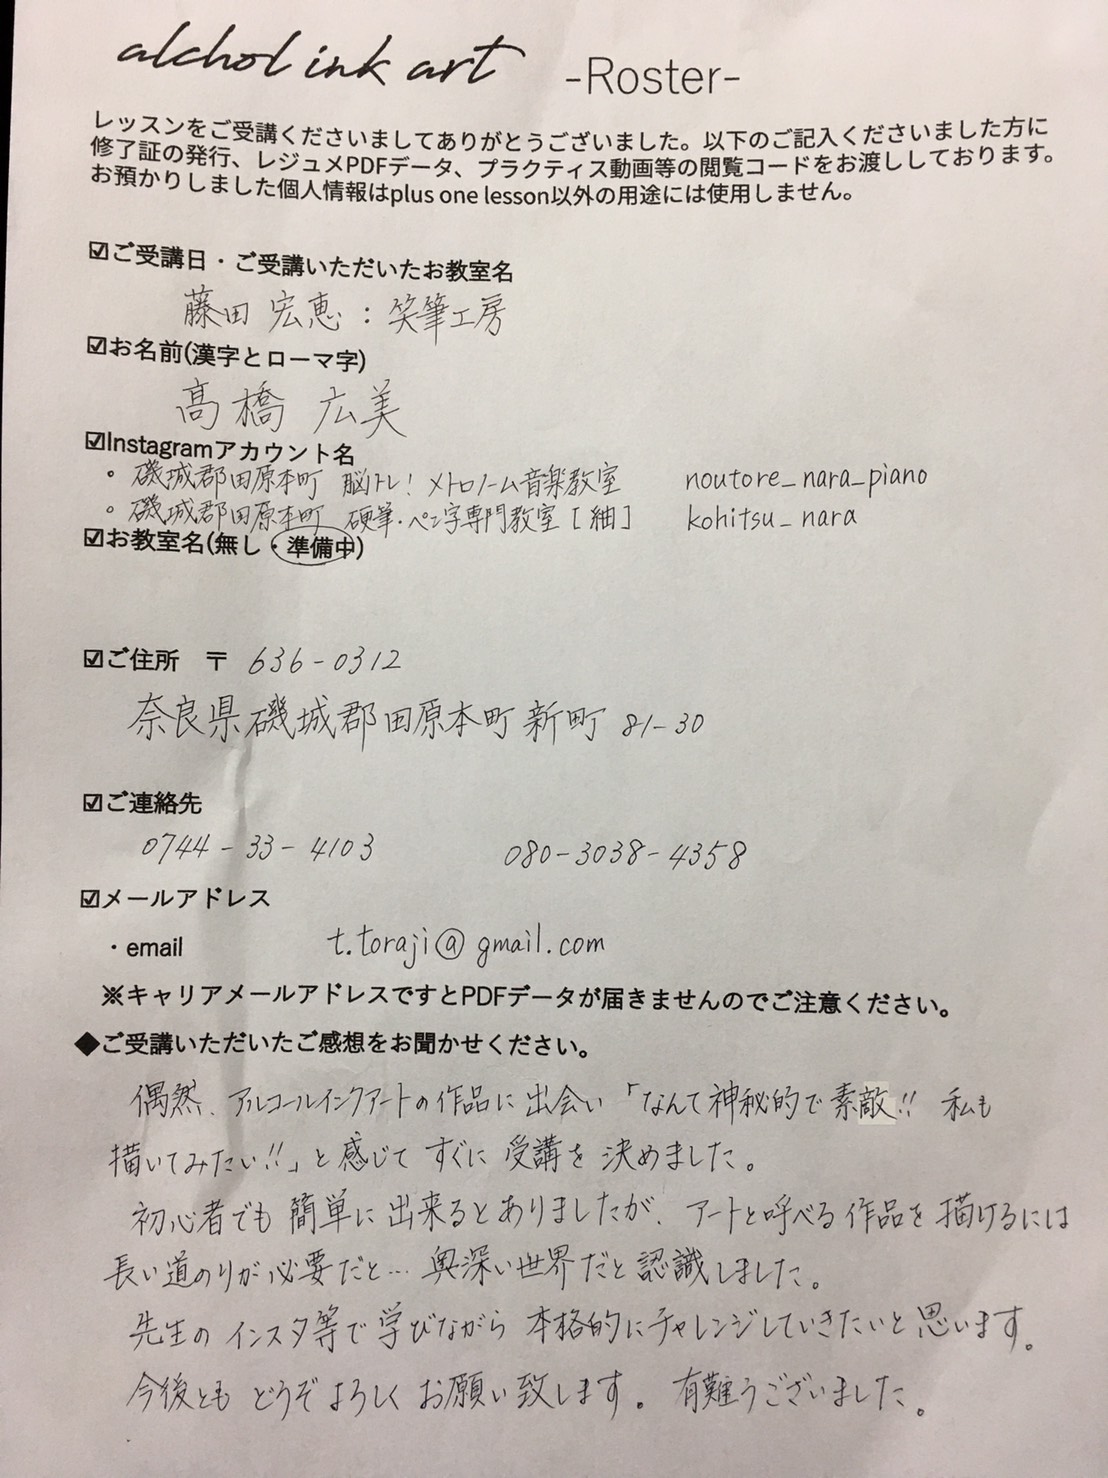 alchol ink art -Roster-
レッスンをご受講くださいましてありがとうございました。以下のご記入くださいました方に
修了証の発行、レジュメPDFデータ、プラクティス動画等の閲覧コードをお渡ししております。
お預かりしました個人情報はplus one lesson以外の用途には使用しません。
☑ご受講日・ご受講いただいたお教室名
藤田 宏恵：笑筆工房
☑お名前(漢字とローマ字)
髙橋 広美
☑Instagramアカウント名
。磯城郡田原本町 脳トレ！メトロノーム音楽教室 noutore_nara_piano
。磯城郡田原本町 硬筆・ペン字専門教室［紬］ kohitsu_nara
☑お教室名(無し・準備中)
☑ご住所 〒 636-0312
奈良県磯城郡田原本町新町 81-30
☑ご連絡先
0744-33-4103 080-3038-4358
☑メールアドレス
・email t.toraji@gmail.com
※キャリアメールアドレスですとPDFデータが届きませんのでご注意ください。
◆ご受講いただいたご感想をお聞かせください。
偶然、アルコールインクアートの作品に出会い「なんて神秘的で素敵!! 私も
描いてみたい!!」と感じてすぐに受講を決めました。
初心者でも簡単に出来るとありましたが、アートと呼べる作品を描けるには
長い道のりが必要だと…奥深い世界だと認識しました。
先生のインスタ等で学びながら本格的にチャレンジしていきたいと思います。
今後ともどうぞよろしくお願い致します。有難うございました。